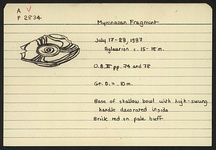 A V
P 2834
Mycenaean Fragment
July 17-28, 1937
c. 15-18 m.
pp. 74 and 78
Gr. D. = .10 m.
Base of shallow bowl with high-swung
handle decorated inside
Brick red on pale buff